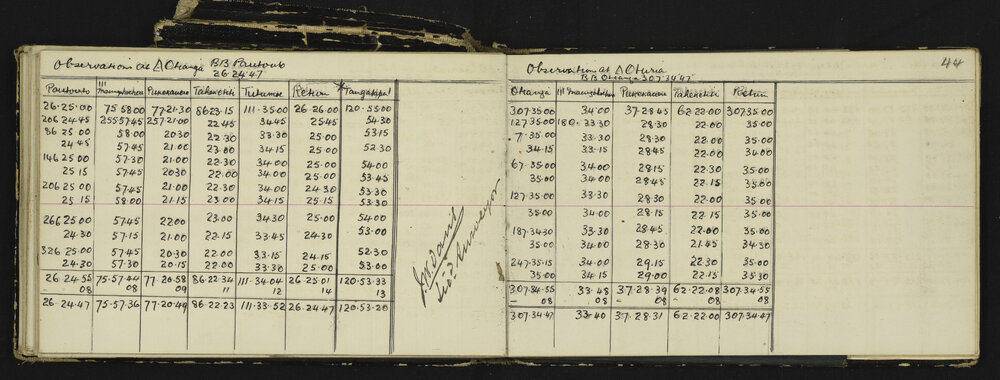 Observations at △ Otanga BB Poutouto
26.24.47
Poutouto III Maungataroa Pukekauae Takeketiki Tutumoe Return Tangatapu
26.25.00 75.58.00 77.21.30 86.23.15 111.35.00 26.26.00 120.55.00
206.24.45 255.57.45 257.21.00 22.45 34.45 25.45 54.30
86 25 00 58.00 20.30 22.30 33.30 25.00 53.15
24 45 57.45 21.00 23.00 34.15 25.00 52.30
146 25 00 57.30 21.00 22.30 34.00 25.00 54.00
25 15 57.45 20.30 22.00 34.00 25.00 53.45
206 25 00 57.45 21.00 22.30 34.00 24.30 53.30
25 15 58.00 21.15 23.00 34.15 25.15 53.30
266 25.00 57.45 22.00 23.00 34.30 25.00 54.00
24.30 57.15 21.00 22.15 33.45 24.30 53.00
326 25.00 57.45 20.30 22.00 33.15 24.15 52.30
24.30 57.30 20.15 22.00 33.30 25.00 53.00
26.24.55 75.57.44 77.20.58 86.22.34 111.34.04 26.25.01 120.53.33
08 08 09 11 12 14 13
26.24.47 75.57.36 77.20.49 86.22.23 111.33.52 26.24.47 120.53.20
44
Observations at △ Oturia
BB Otanga 307.34.47
Otanga III Maungataroa Pukekauae Takeketiki Return
307.35.00 34.00 37.28.45 62.22.00 307.35.00
127.35.00 180.33.30 28.30 22.00 35.00
7.35.00 33.30 28.30 22.00 35.00
34.15 33.15 28.45 22.00 34.00
67.35.00 34.00 28.15 22.30 35.00
35.00 34.00 28.45 22.15 35.00
127.35.00 33.30 28.30 22.00 35.00
35.00 34.00 28.15 22.15 35.00
187.34.30 33.30 28.45 22.00 35.00
35.00 34.00 28.30 21.45 34.30
247.35.15 34.00 29.15 22.30 35.00
35.00 34.15 29.00 22.15 35.30
307.34.55 33.48 37.28.39 62.22.08 307.34.55
08 08 08 08 08
307.34.47 33.40 37.28.31 62.22.00 307.34.47